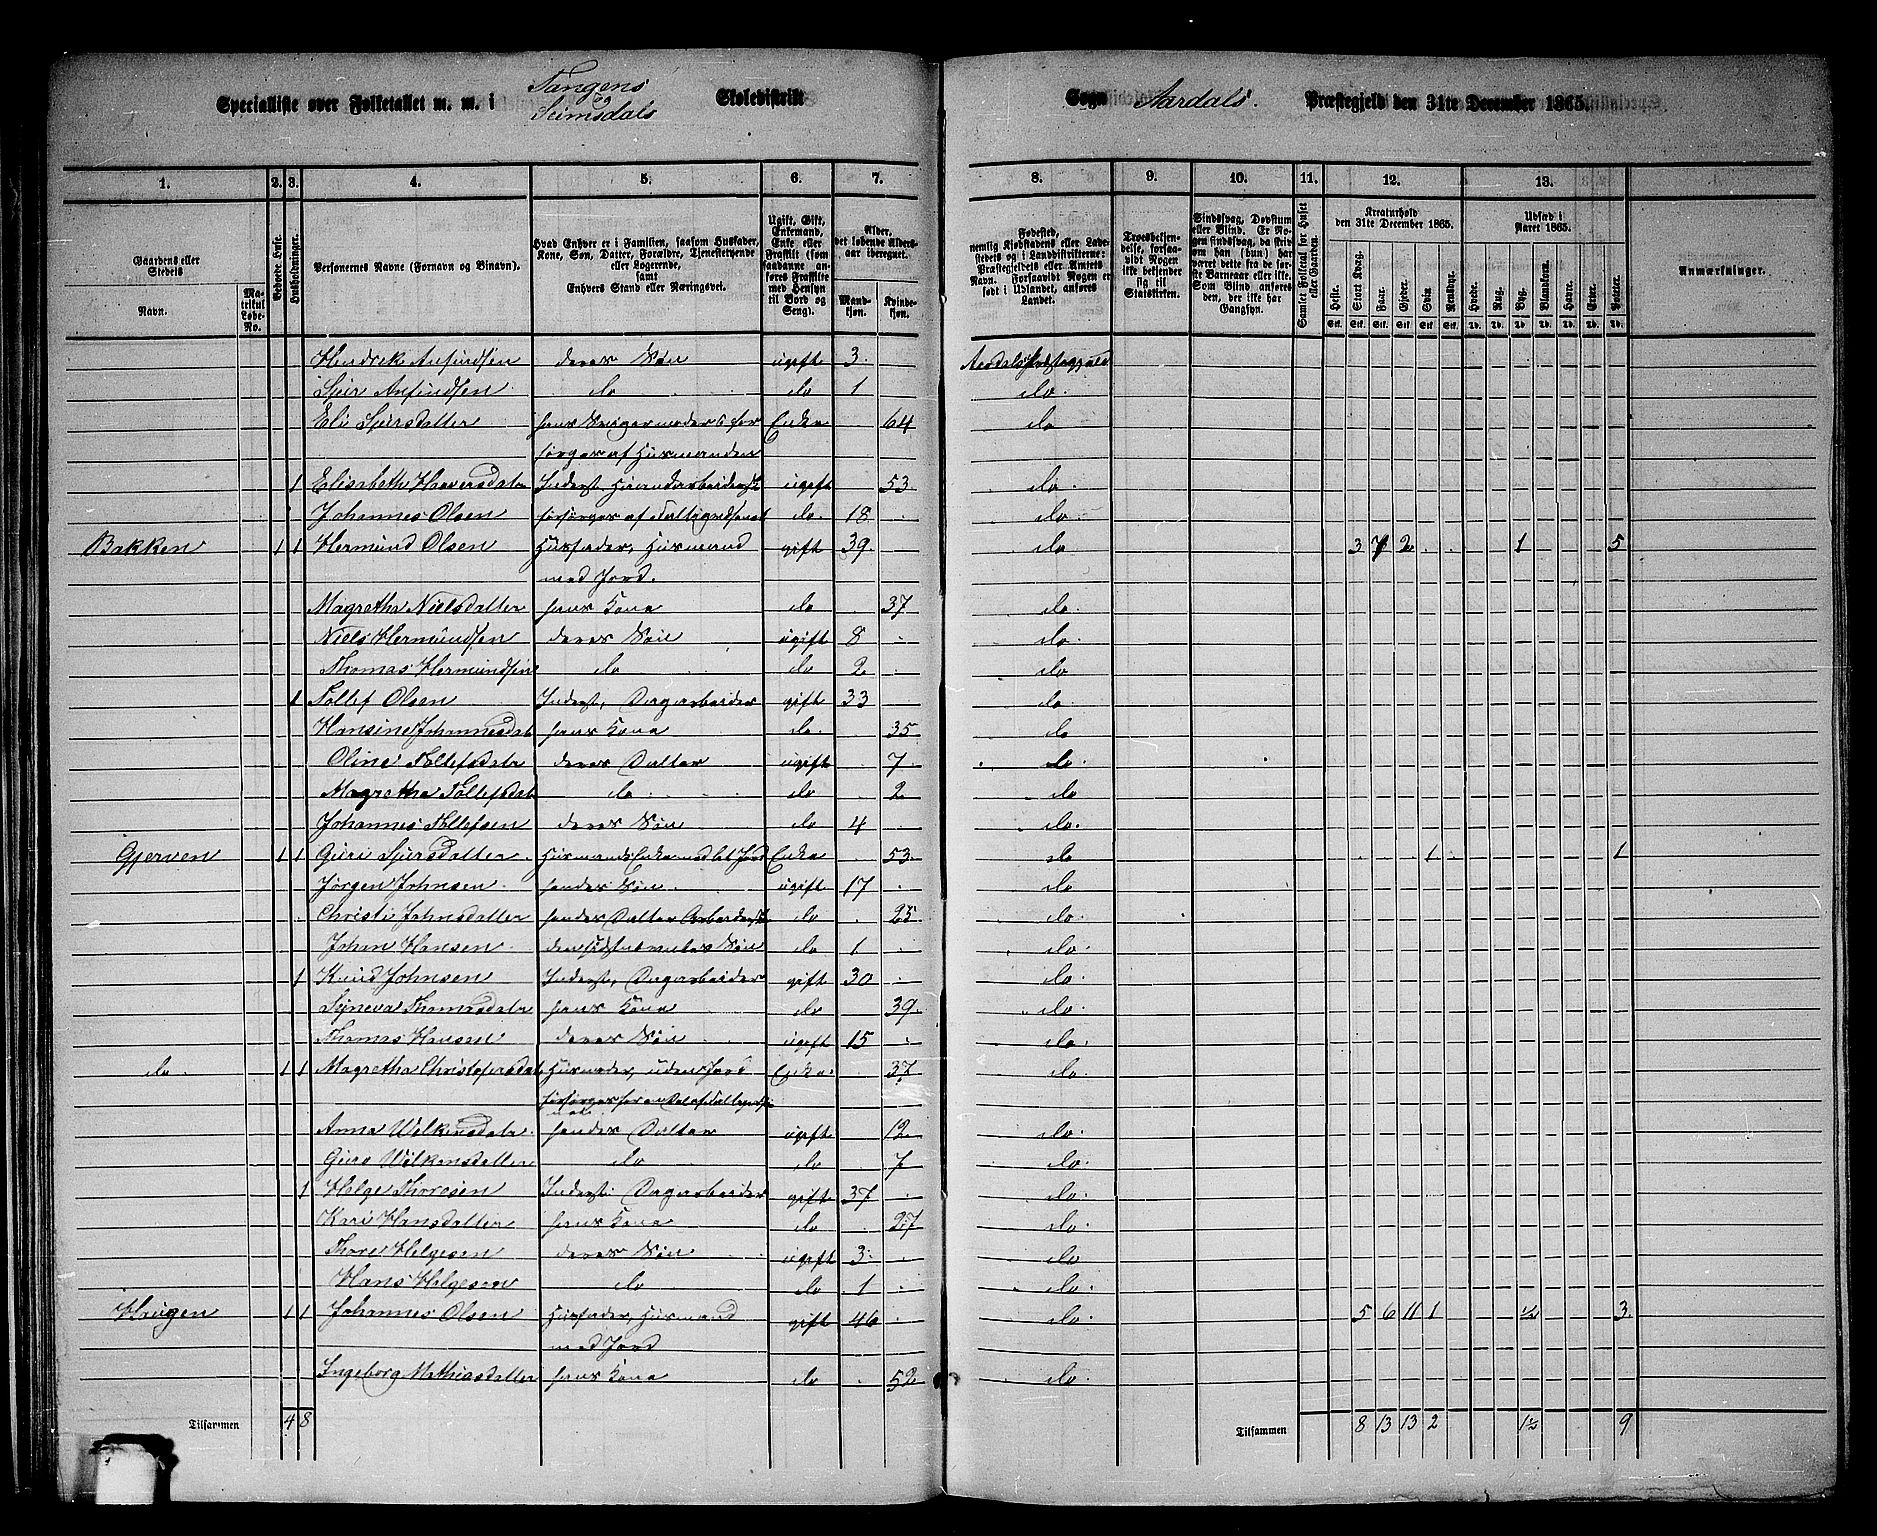 Specialliste over Folketallet m. m. i Tangens og Seimsdals Skoledistrikt
Sogn Aardals Præstegjeld den 31te December 1865.
1. 2. 3. 4. 5. 6. 7. 8. 9. 10. 11. 12. 13.
Gaardens eller Stedets
Navn.
Matrikul Løbe-No.
Beboede Huse.
Husholdninger.
Personernes Navne (Fornavn og Binavn).
Hvad Enhver er i Familien, saasom Husfader, Kone, Søn, Datter, Forældre, Tjenestetyende eller Logerende,
samt
Enhvers Stand eller Næringsvei.
Ugift, Gift, Enkemand, Enke eller Fraskilt (som saadanne anføres Fraskilte med Hensyn til Bord og Seng).
Alder, det løbende Aldersaar iberegnet.
Mandkjøn.
Kvindekjøn.
Fødested,
nemlig Kjøbstadens eller Ladestedets og i Landdistrikterne: Præstegjeldets eller Amtets Navn. Forsaavidt Nogen er født i Udlandet, anføres Landet.
Troesbekjendelse, forsaavidt Nogen ikke bekjender sig til Statskirken.
Sindssvag, Døvstum eller Blind. Er Nogen sindssvag, da skrives om han (hun) har været dette fra de første Barneaar eller ikke. Som Blind anføres den, der ikke har Gangsyn.
Samlet Folketal for Huset eller Gaarden.
Kreaturhold den 31te December 1865.
Udsæd i Aaret 1865.
Heste. Stort Kvæg. Faar. Gjeder. Svin. Rensdyr. Hvede. Rug. Byg. Blandkorn. Havre. Erter. Poteter.
Anmærkninger.
Hendrek Anfindsen deres Søn ugift 3. Aardals Præstegjeld
Sjur Anfindsen do do 1 do.
Eli Sjursdatter hans Svigermoder, for Enke 64 do
sørges af Husmanden
1 Elisabeth Haversdatr Inderst, Haandarbeiderske ugift 53 do.
Johannes Olsen forsørges af Fattigvæsenet do. 18 do.
Bakken 1 1 Hermund Olsen Husfader, Husmand gift 39 do 3 7 2 1 5
med Jord.
Magretha Nielsdatter hans Kone do 37 do.
Niels Hermundsen deres Søn ugift 8 do.
Thomas Hermundsen do do 2 do
1 Tollef Olsen Inderst, Dagarbeider gift 33 do.
Hansine Johannesdatr hans Kone do. 35 do
Oline Tollefsdatr deres Datter ugift 7 do
Magretha Tollefsdatr do. do 2 do
Johannes Tollefsen deres Søn do 4 do.
Gjerven 1 1 Guri Sjursdatter Husmands Enke med lit Jord Enke 53 do 1 1
Jørgen Johnsen hendes Søn ugift 17 do
Christi Johnsdatter hendes Datter Arbeiderske do 25 do.
Johan Hansen den sidstnævntes Søn do 1 do.
1 Knud Johnsen Inderst, Dagarbeider gift 30 do.
Syneva Thomasdatr hans Kone do 39 do
Thomas Hansen deres Søn ugift 15 do.
do. 1 1 Magretha Christofersdatr Husmoder, uden Jord Enke 37 do.
forsørges for en Del af Fattigvæsenet
Anna Wilkensdatr hendes Datter ugift 12 do.
Guro Wilkensdatter do do 7 do.
1 Helge Thoresen Inderst: Dagarbeider gift 37 do.
Kari Hansdatter hans Kone do 27 do.
Thore Helgesen deres Søn ugift 3 do
Hans Helgesen do do 1 do.
Haugen 1 1 Johannes Olsen Husfader, Husmand gift 46 do 5 6 11 1 ½ 3
med Jord
Ingeborg Mathiasdatter hans Kone do 52 do.
Tilsammen 4 8
Tilsammen 8 13 13 2 1½ 9